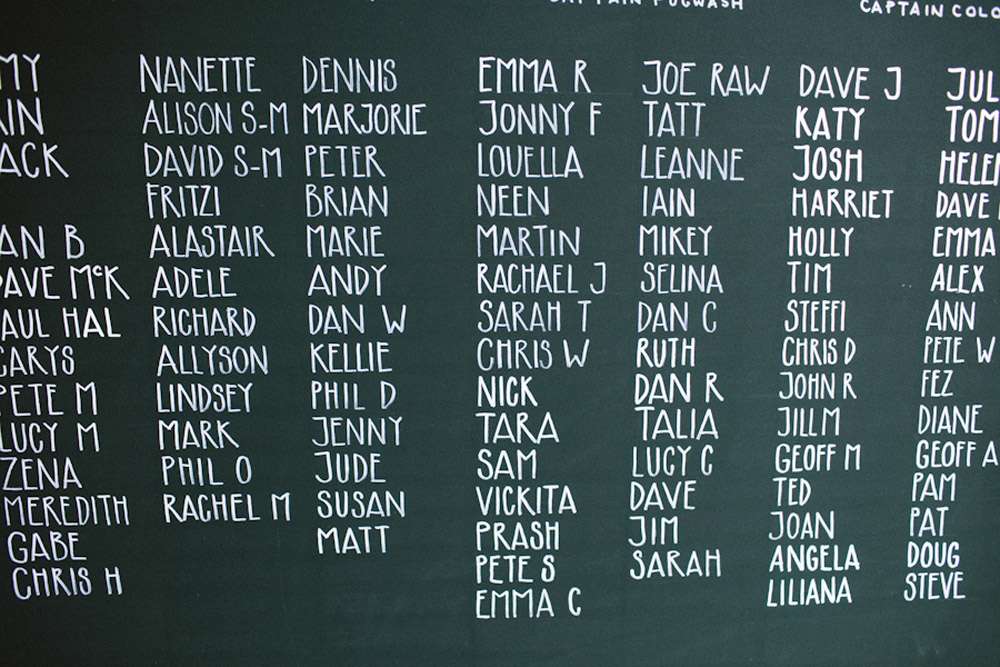 CAPTAIN PUGWASH
CAPTAIN COLO
MY
IN
ACK
AN B
DAVE McK
AUL HAL
CARYS
PETE M
LUCY M
ZENA
MEREDITH
GABE
CHRIS H
NANETTE
ALISON S-M
DAVID S-M
FRITZI
ALASTAIR
ADELE
RICHARD
ALLYSON
LINDSEY
MARK
PHIL O
RACHEL M
DENNIS
MARJORIE
PETER
BRIAN
MARIE
ANDY
DAN W
KELLIE
PHIL D
JENNY
JUDE
SUSAN
MATT
EMMA R
JONNY F
LOUELLA
NEEN
MARTIN
RACHAEL J
SARAH T
CHRIS W
NICK
TARA
SAM
VICKITA
PRASH
PETE S
EMMA C
JOE RAW
TATT
LEANNE
IAIN
MIKEY
SELINA
DAN C
RUTH
DAN R
TALIA
LUCY C
DAVE
JIM
SARAH
DAVE J
KATY
JOSH
HARRIET
HOLLY
TIM
STEFFI
CHRIS D
JOHN R
JILL M
GEOFF M
TED
JOAN
ANGELA
LILIANA
JUL
TOM
HELEN
DAVE
EMMA
ALEX
ANN
PETE W
FEZ
DIANE
GEOFF A
PAM
PAT
DOUG
STEVE